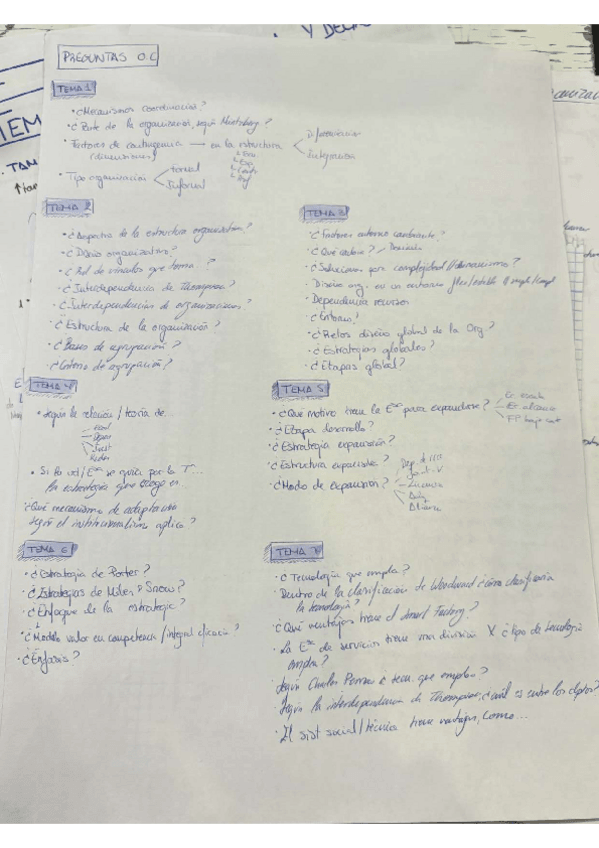 Y DECI
PREGUNTAS O.C
TEMA 1
• ¿Mecanismos coordinación?
• ¿Parte de la organización, según Mintzberg?
• Factores de contingencia → en la estructura
(dimensiones)
Diferenciación
Integración
• Tipo organización
formal
Informal
TEMA 2
• ¿Aspectos de la estructura organizativa?
• ¿Diseño organizativo?
• ¿Red de vínculos que forma..?
• ¿Interdependencia de Thompson?
• ¿Interdependencias de organizaciones?
• ¿Estructura de la organización?
• ¿Bases de agrupación?
• ¿Criterio de agrupación?
TEMA 3
• ¿Factores entorno cambiante?
• ¿Qué sector?
• ¿Soluciones por complejidad/dinamismo?
• Diseño org. en un entorno
• Dependencia recursos
• ¿Entorno?
• ¿Retos diseño global de la Org.?
• ¿Estrategias globales?
• ¿Etapas global?
TEMA 4
• según la relación / teoría de...
• Si la ud/Eª se guía por la T...
la estrategia que escoge es...
¿Qué mecanismo de adaptación
según el institucionalismo aplica?
TEMA 5
• ¿Qué motivo tiene la Eª para expandirse?
Ec. escala
Ec. alcance
• ¿Etapa desarrollo?
• ¿Estrategia expansión?
• ¿Estructura expansión?
• ¿Modo de expansión?
Joint-V
Licencia
Alianza
TEMA 6
• ¿Estrategia de Porter?
• ¿Estrategias de Miles y Snow?
• ¿Enfoque de la estrategia?
• ¿Modelo valor en competencia/integral eficacia?
¿Énfasis?
TEMA 7
• ¿Tecnología que emplea?
• Dentro de la clasificación de Woodward ¿cómo clasificaría
la tecnología?
• ¿Qué ventajas tiene el Smart Factory?
• La Eª de servicios tiene una división X ¿tipo de tecnología
emplea?
• Según Charles Perrow ¿tecn. que emplea?
• Según la interdependencia de Thompson, ¿cuál es entre los dptos?
• El sist social/técnico tiene ventajas, como...